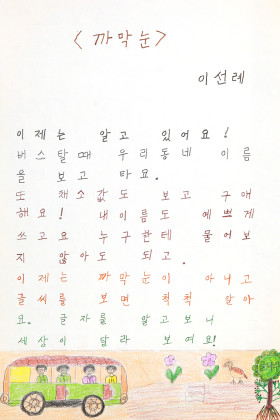 <까막눈>
이선례
이제는 알고 있어요!
버스탈때 우리동네 이름
을 보고 타요.
또 채소값도 보고 구애
해요! 내이름도 예쁘게
쓰고요 누구한테 물어보
지 않아도 되고.
이제는 까막눈이 아니고
글씨를 보면 척척 알아
요. 글자를 알고보니
세상이 달라 보여요!